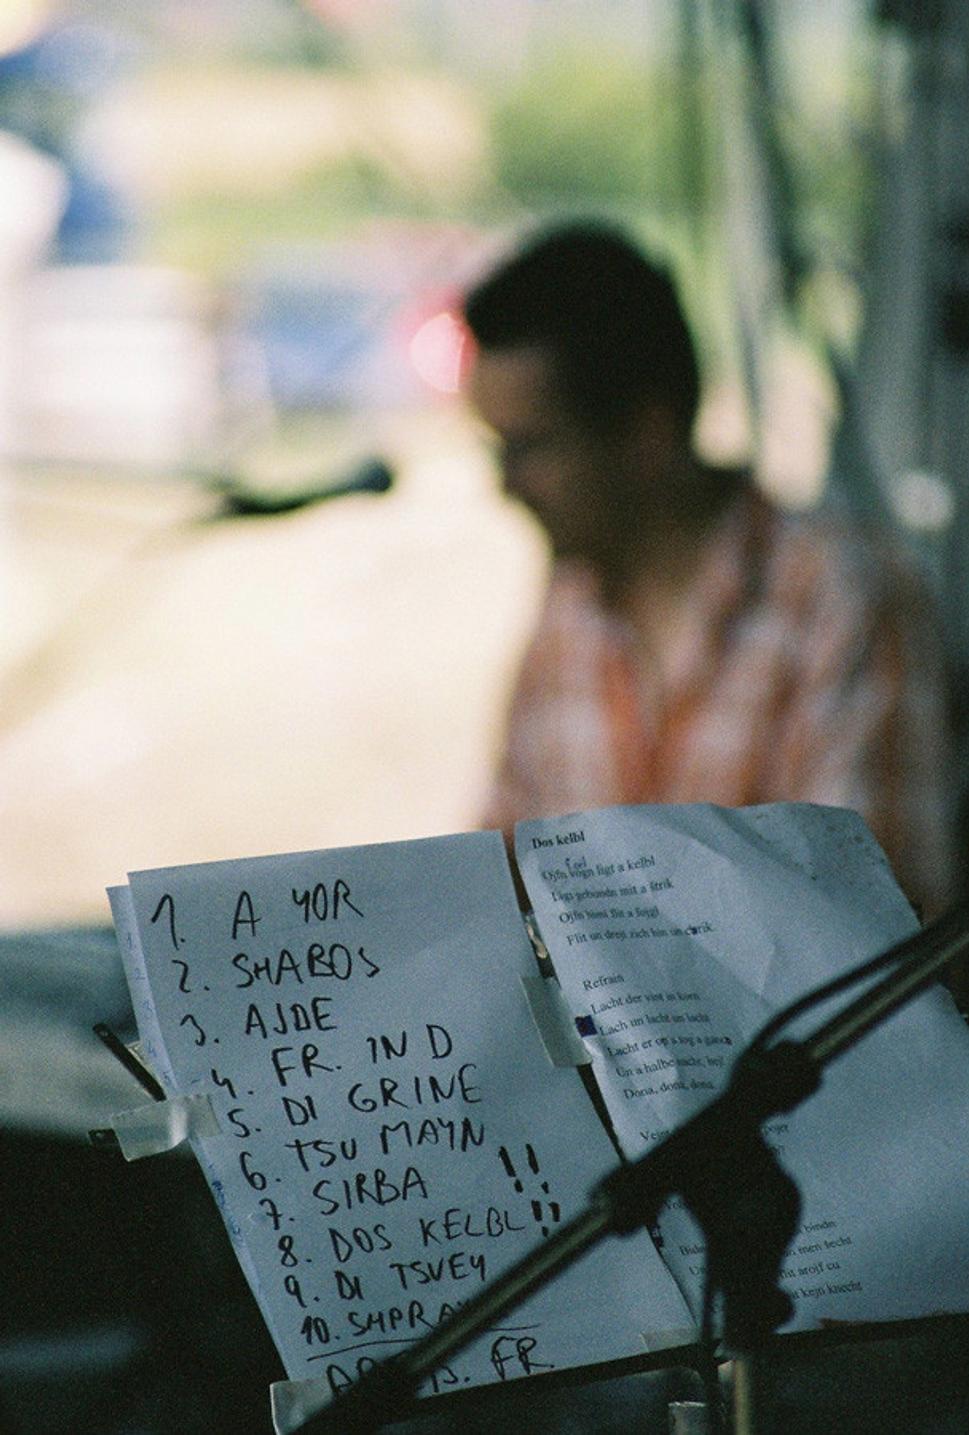 1. A YOR
2. SHABOS
3. AJDE
4. FR. IN D
5. DI GRINE
6. TSU MAYN
7. SIRBA !!
8. DOS KELBL !!
9. DI TSVEY
10.
FR.
Dos kelbl
Ojfn vogn ligt a kelbl
Ligt gebundn mit a štrik
Ojfn himl flit a fojgl
Flit un drejt zich hin un crik.
Refrain
Lacht der vint in korn
Lach un lacht un lacht
Lacht er op a tog a gancn
Un a halbe nacht, hej!
Dona, dona, dona
bindn
men šecht
flit arojf cu
kejn knecht